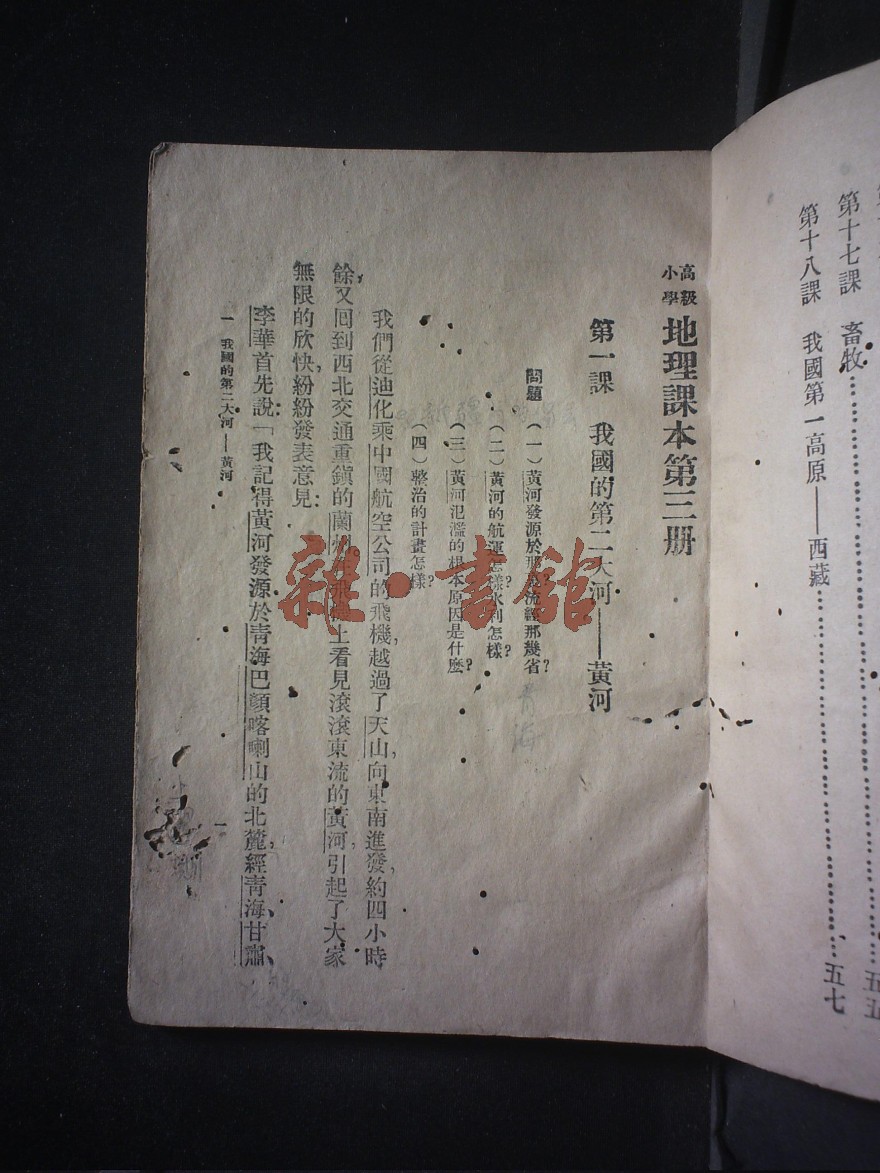 第十七課 畜牧……五五
第十八課 我國第一高原——西藏……五七
高級小學 地理課本第三册
第一課 我國的第二大河——黃河
問題 (一)黃河發源於那裏?流經那幾省?
(二)黃河的航運怎樣?水利怎樣?
(三)黃河氾濫的根本原因是什麽?
(四)整治的計畫怎樣?
我們從迪化乘中國航空公司的飛機,越過了天山,向東南進發,約四小時
餘,又回到西北交通重鎮的蘭州。在飛機上看見滾滾東流的黃河,引起了大家
無限的欣快,紛紛發表意見:
李華首先說:「我記得黃河發源於青海巴顏喀喇山的北麓,經青海、甘肅、
一 我國的第二大河——黃河
一
青海
雜·書館